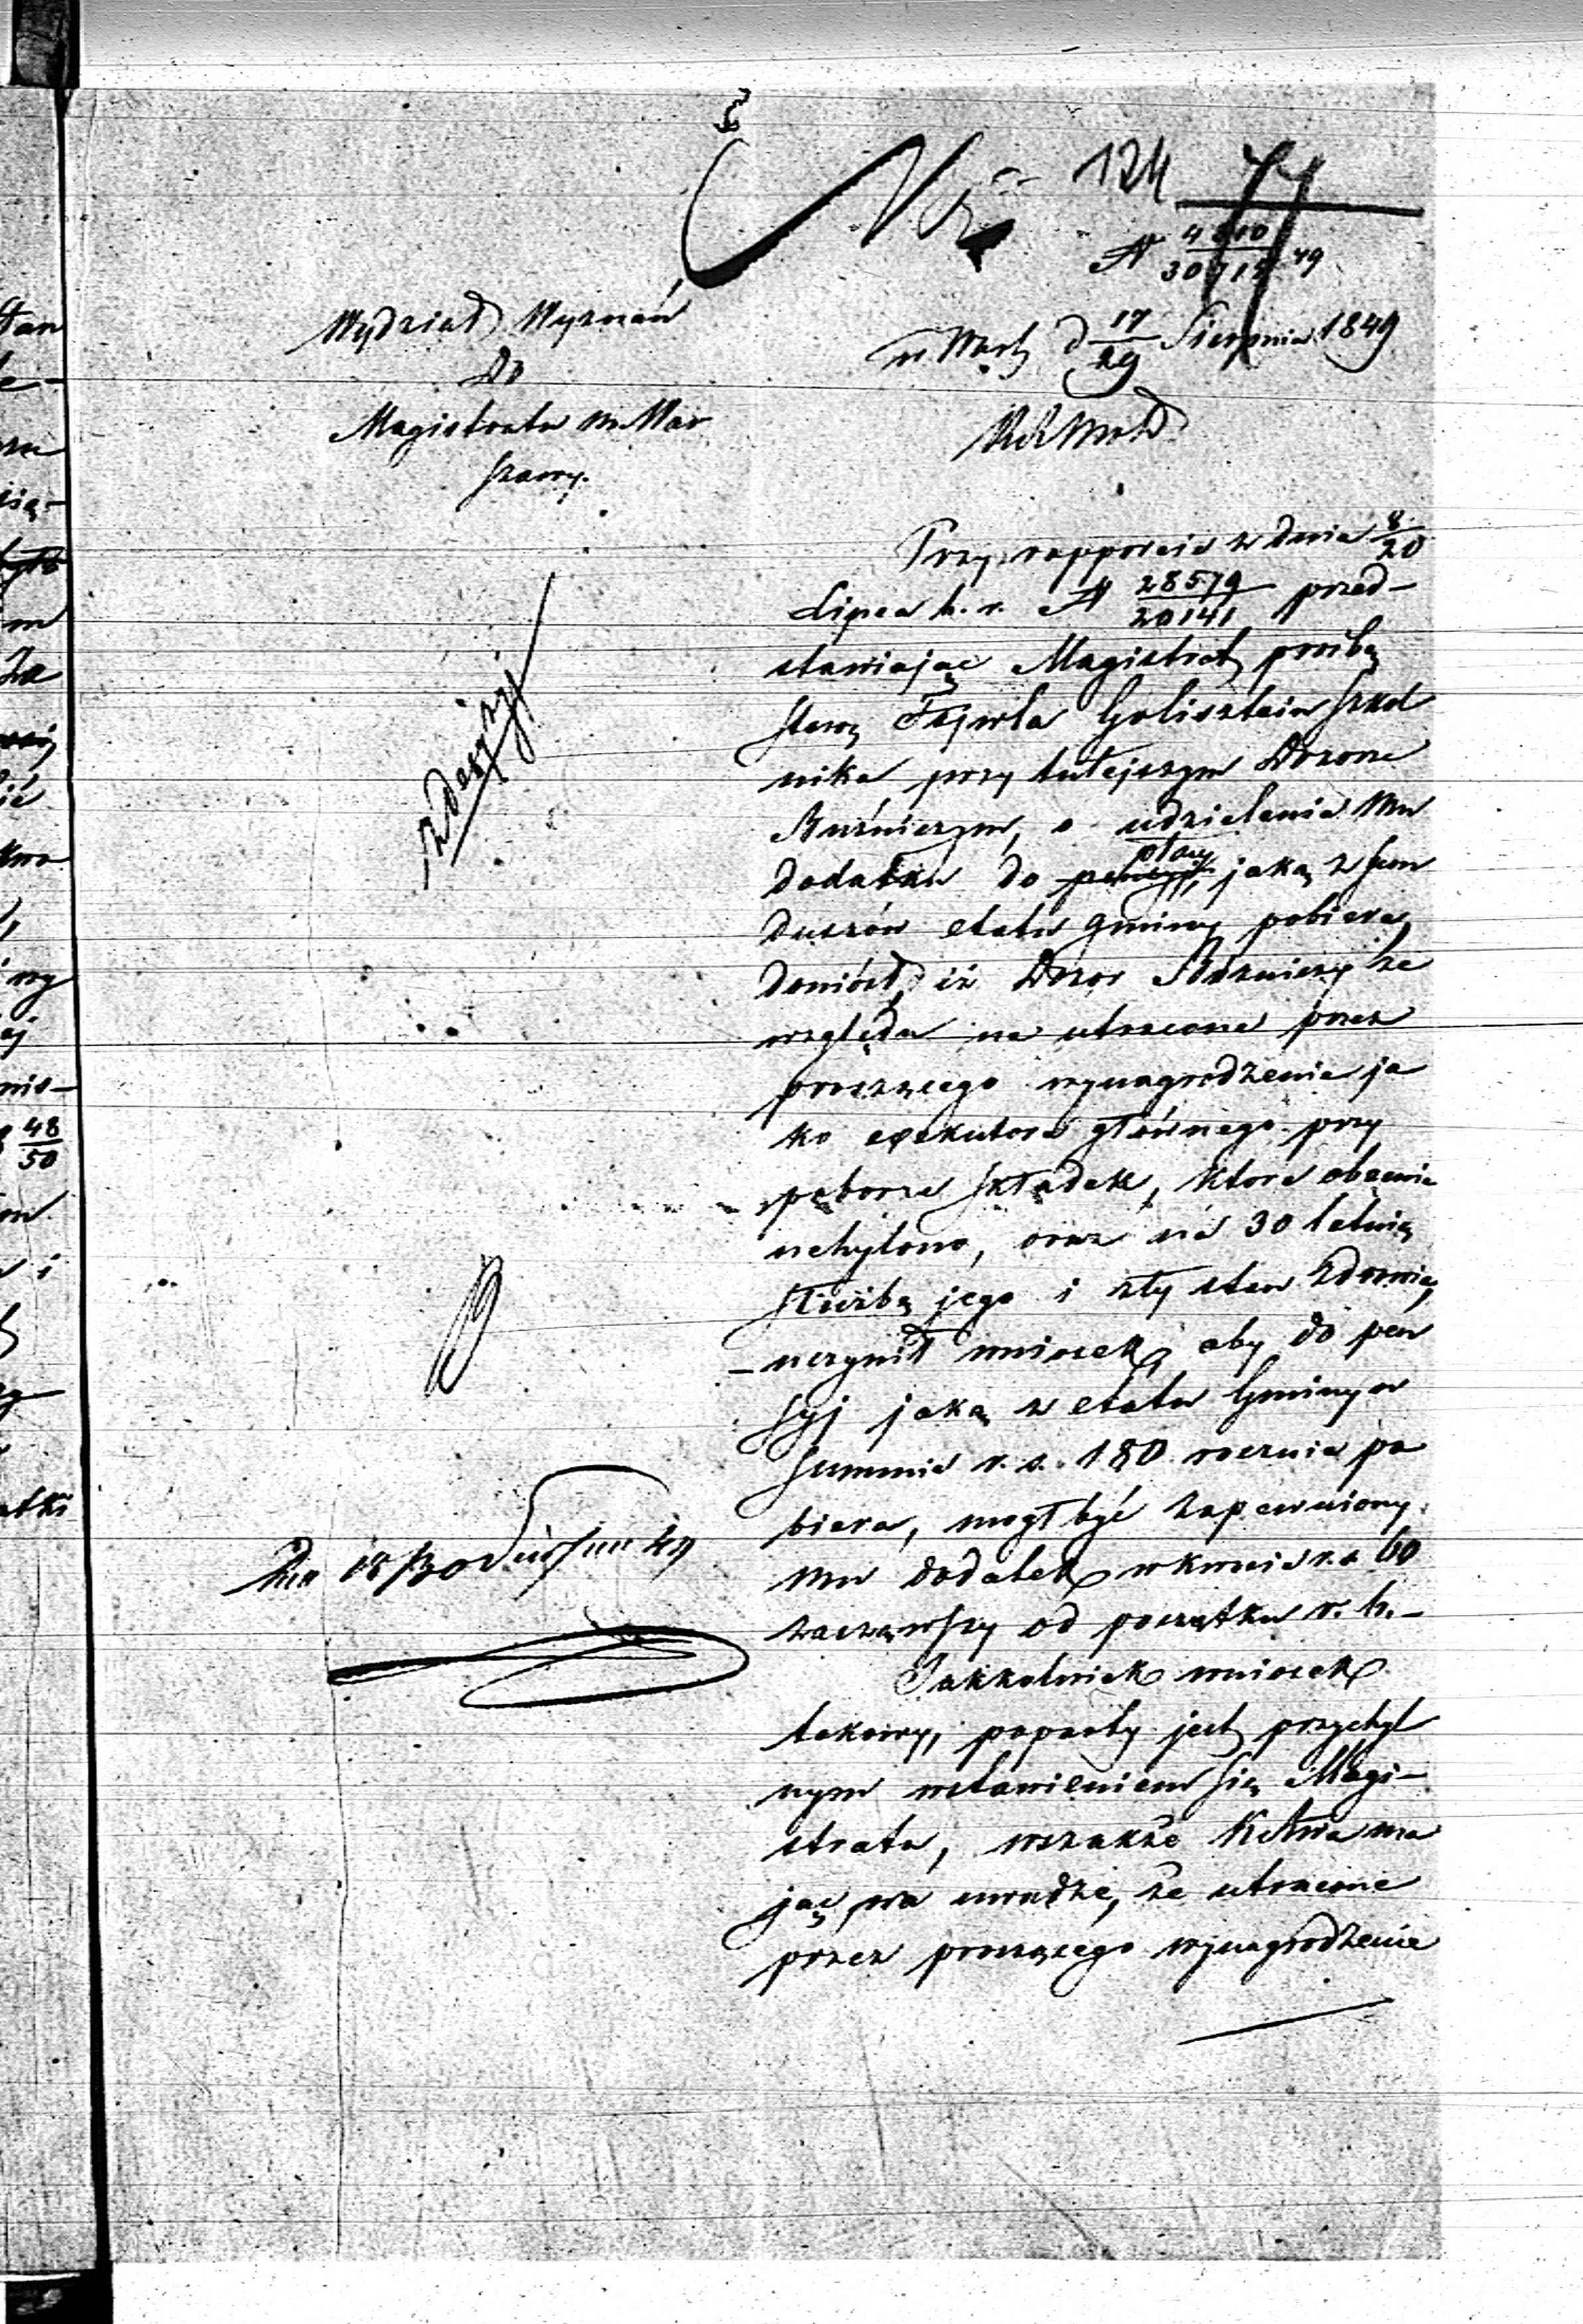 124 77
N 4810/30715 49
Wydział Wyznań
do
Magistratu m. War
szawy.
w Warsz d 17/29 Sierpnia 1849
Przy rapporcie z dnia 8/20
Lipca b. r. N 28579/20141 przed-
stawiając Magistrat prośbę
starz Fajwla Goldsztein szkol
nika przy tutejszym Dozorze
Bużniczym, o udzielenie mu
dodatku do płacy jaką z fun
duszów etatu gminy pobiera,
doniósł, iż Dozór Bużniczy ze
względu na utracone przez
proszącego wynagrodzenie ja
ko exekutora głównego przy
poborze składek, które obecnie
uchylono, oraz na 30 letnią
służbę jego i zły stan zdrowia,
uczynił wniosek, aby do pen
syj jaką z etatu Gminy w
summie r. s. 180 rocznie po
biera, mógł być zapewniony
mu dodatek w kwocie r. s. 60
zacząwszy od początku r. b.-
Jakkolwiek wniosek
takowy, poparty jest przychyl
nym wstawieniem się Magi-
stratu, wszakże Kctwa ma
jąc na uwadze, że utracone
przez proszącego wynagrodzenie
48/50